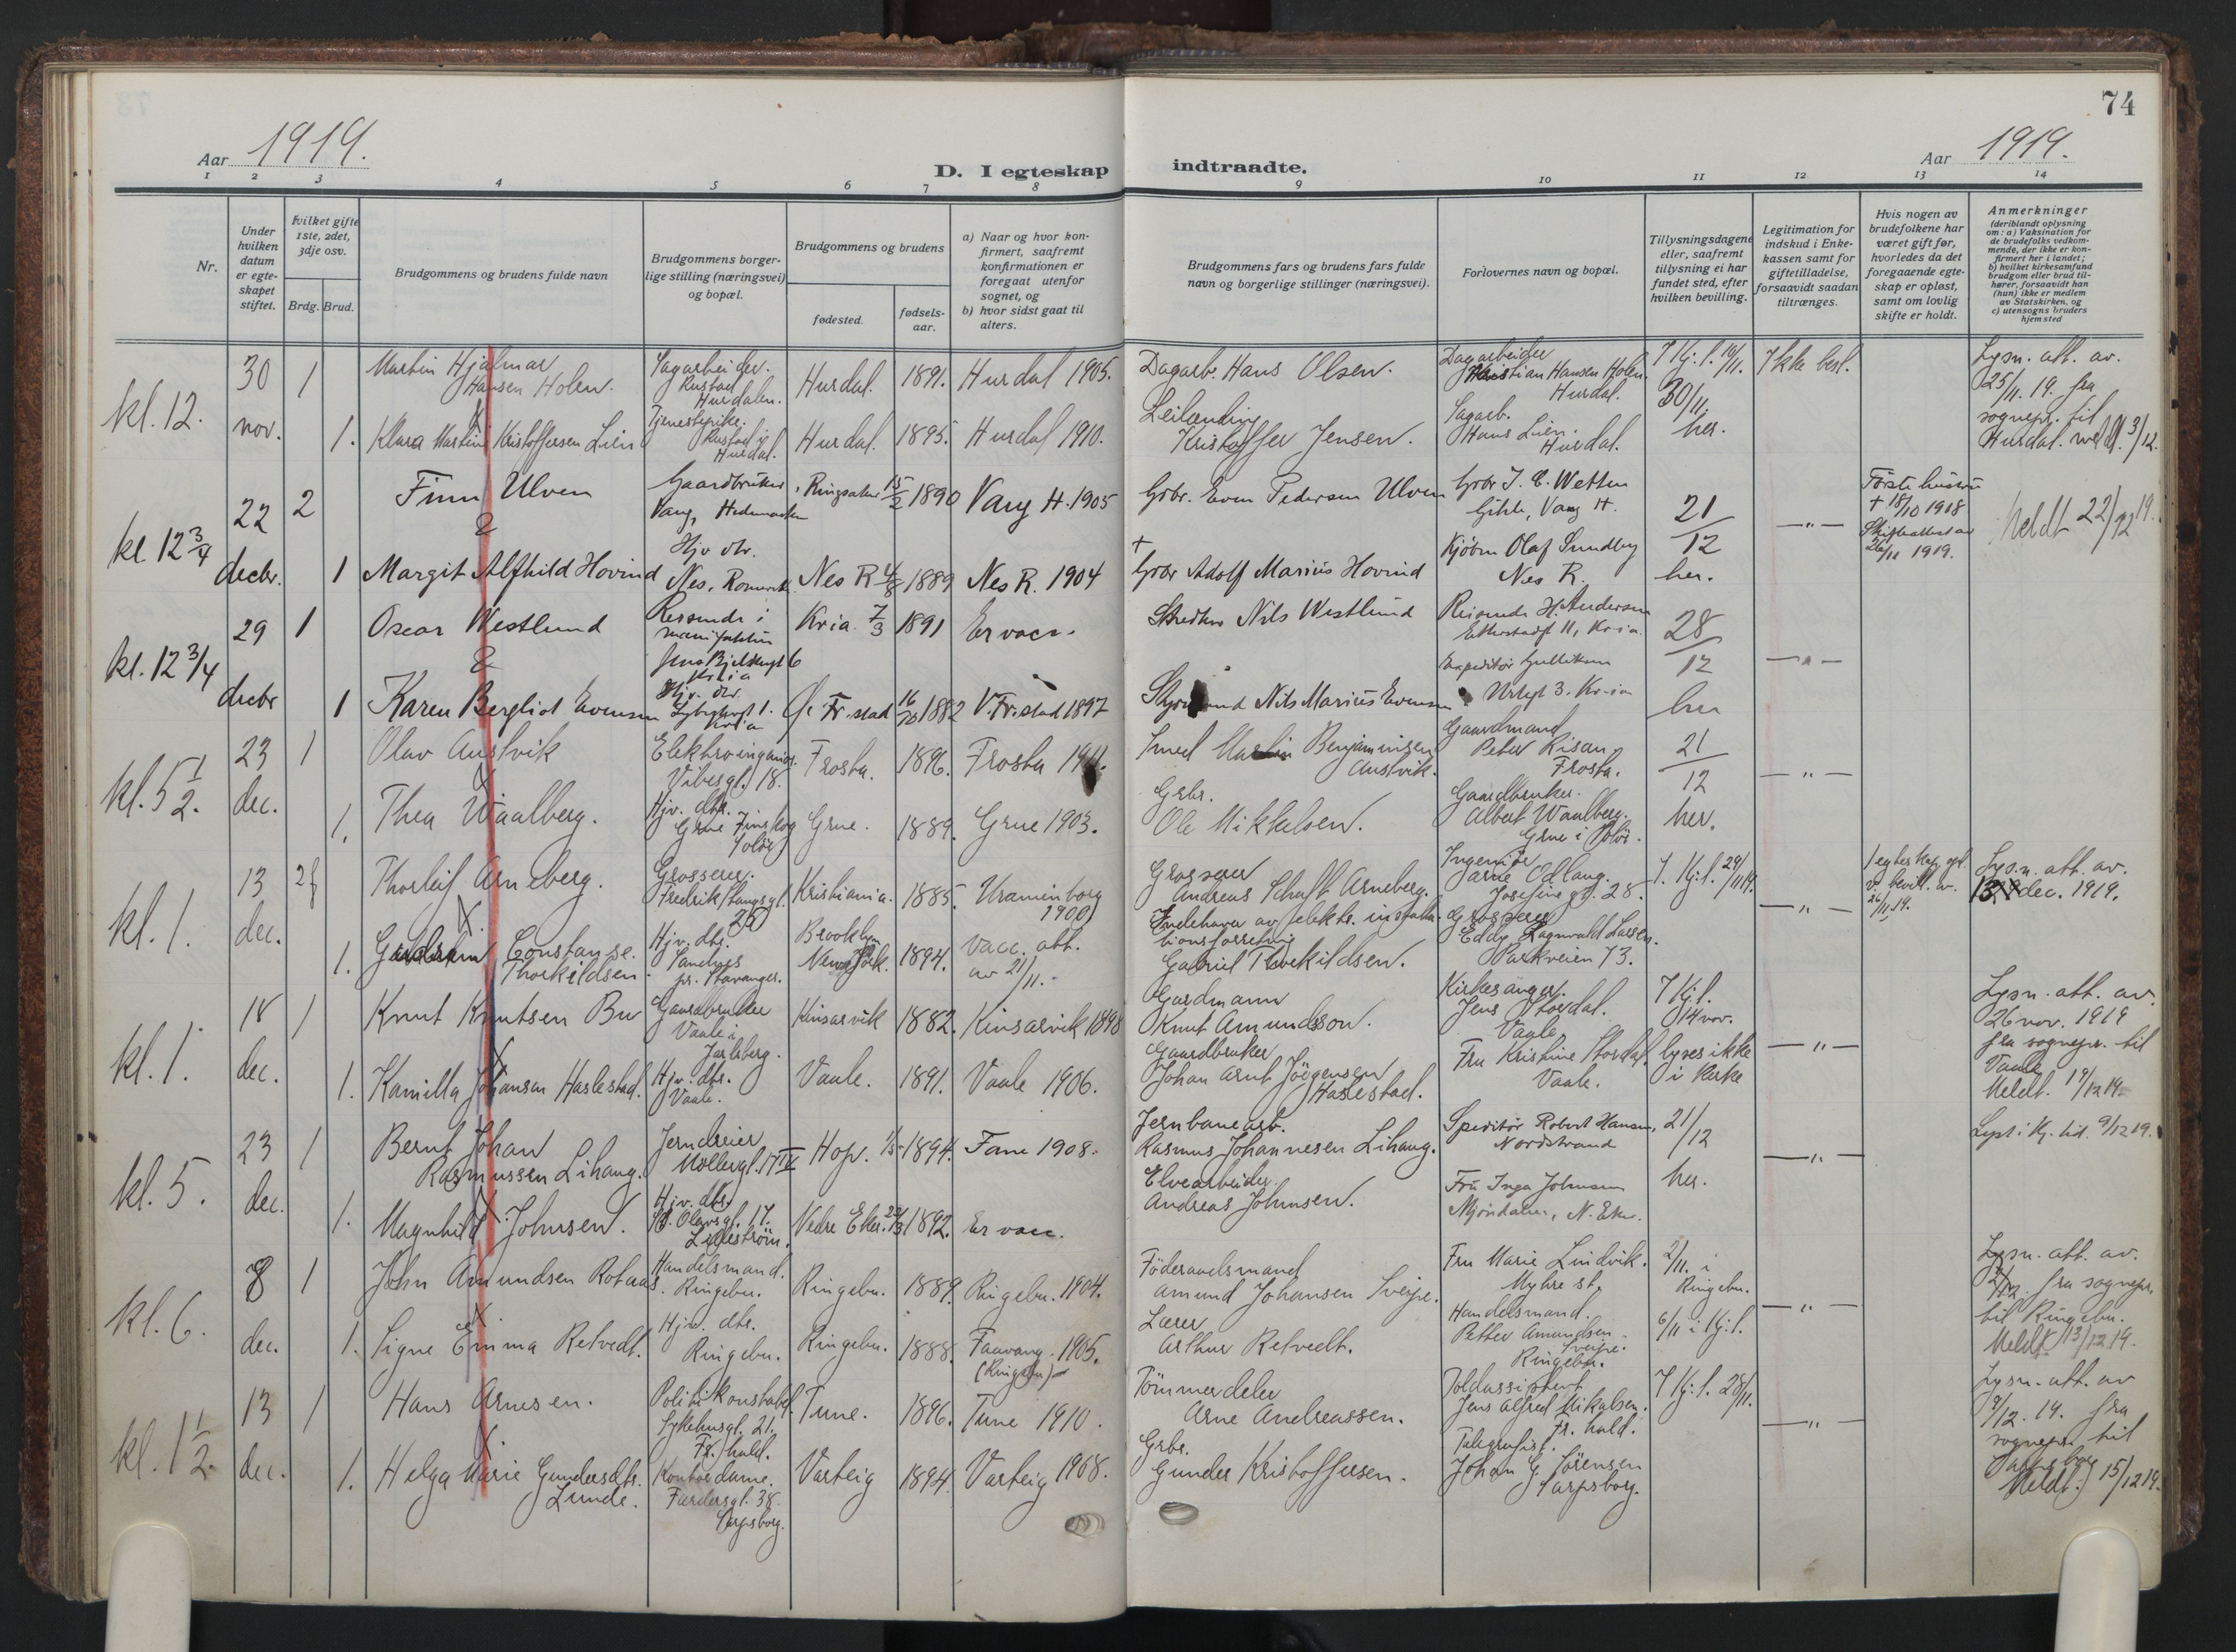 74
Aar 1919.
Aar 1919.
D. I egteskap indtraadte.
1 2 3 4 5 6 7 8 9 10 11 12 13 14
Nr.
Under hvilken datum er egte-skapet stiftet.
hvilket gifte 1ste, 2det, 3dje osv.
Brdg. Brud.
Brudgommens og brudens fulde navn
Brudgommens borger-lige stilling (næringsvei) og bopæl.
Brudgommens og brudens
fødested.
fødsels-aar.
a) Naar og hvor kon-firmert, saafremt konfirmationen er foregaat utenfor sognet, og
b) hvor sidst gaat til alters.
Brudgommens fars og brudens fars fulde navn og borgerlige stillinger (næringsvei).
Forlovernes navn og bopæl.
Tillysningsdagene eller, saafremt tillysning ei har fundet sted, efter hvilken bevilling.
Legitimation for indskud i Enke-kassen samt for giftetilladelse, forsaavidt saadan tiltrænges.
Hvis nogen av brudefolkene har været gift før, hvorledes da det foregaaende egte-skap er opløst, samt om lovlig skifte er holdt.
Anmerkninger
(deriblandt oplysning om: a) Vaksination for de brudefolks vedkom-mende, der ikke er kon-firmert her i landet; b) hvilket kirkesamfund brudgom eller brud til-hører, forsaavidt han (hun) ikke er medlem av Statskirken, og c) utensogns bruders hjemsted
kl. 12. 30 nov. 1 Martin Hjalmar Hansen Holen. Sagarbeider. Rustad Hurdalen. Hurdal. 1891. Hurdal 1905. Dagarb. Hans Olsen. Dagarbeider Kristian Hansen Holen. Hurdal. I Kj. l. 19/11. 30/11. her. Ikke besl. Lysn. att. av. 25/11. 19. fra sognepr. til Hurdal. meldt. 3/12.
1. Klara Martine Kristoffersen Lien Tjenestepike. Rustad i Hurdal. Hurdal. 1895. Hurdal 1910. Leilænding Kristoffer Jensen. Sagarb. Hans Lien. Hurdal.
kl. 12 3/4 22 decbr. 2 Finn Ulven Gaardbruker, Vang, Hedemarken Ringsaker 15/2 1890 Vang H. 1905 Grbr. Even Pedersen Ulven Grbr J. E. Wetten Vang H. 21/12 her. —"— + 18/10 1918 Skifteattest av 26/11 1919. Meldt 22/12 19.
&
1 Margit Alfhild Hovind Hjv dtr. Nes, Romerike Nes R 4/8 1889 Nes R. 1904 + Grbr Adolf Marius Hovind Kjøbm Olaf Sundby Nes R.
kl. 12 3/4 29 decbr 1 Oscar Westlund Reisende i manufaktur Jens Bjelkesgt 6 Kr.ia Kria. 7/3 1891 Er vacc. Nils Westlund Reisende H. Andersen 11, Kria. 28/12 her —"—
&
1 Karen Bergliot Evensen Hjv. dtr. Gl Fr.stad 16/10 1882 V. Fr.stad 1897 Styrmand Nils Marius Evensen Expeditør Gulliksen Urtegt 3. Kr-ia
kl. 5 1/2. 23 dec. 1 Olav Austvik Elektroingeniør. Vibesgt. 18. Frosta. 1896. Frosta 1911. Smed Martin Benjaminsen Austvik. Gaardmand Peter Risan, Frosta. 21/12 her. —"—
1. Thea Waalberg. Hjv. dtr. Grue Finskog Solør Grue. 1889. Grue 1903. Grbr. Ole Mikkelsen. Gaardbruker. Albert Waalberg. Grue i Solør.
kl. 1. 13 dec. 2f Thorleif Arneberg. Grosserer. Fredrik Stangsgt. 20 Kristiania. 1885. Uranienborg 1900 Grosserer Andreas Schaft Arneberg. Ingeniør Arne Odlaug. Josefinegt. 28. I. Kj. l. 29/11 19. —"— I egteskap opl. v. bevill. av. 26/11 19. Lysn. att. av. 13 dec. 1919.
1. Gudrun Constanse. Thorkildsen Hjv. dtr. Sandnes pr. Stavanger. Brooklyn New York. 1894. vacc. att. av 21/11. Indehaver av elektr. installa-tionsforretning Gabriel Thorkildsen. Grosserer Eddy Ragnvald Larsen. Parkveien 73.
kl. 1. 18 dec. 1 Knut Knutsen Bu Gaardbruker Vaale i Jarlsberg. Kinsarvik 1882. Kinsarvik 1898 Gardmann Knut Amundsson. Kirkesanger. Jens Stordal. Vaale I Kj. l. 14 nov. lyses ikke i kirke —"— Lysn. att. av. 26 nov. 1919 fra sognepr. til Vaale Meldt. 19/12 19.
1. Kamilla Johansen Haslestad. Hjv. dtr. Vaale. Vaale. 1891. Vaale 1906. Gaardbruker Johan Arnt Jörgensen Haslestad. Fru Kristine Stordal. Vaale.
kl. 5. 23 dec. 1 Bernt Johan Rasmussen Lihaug. Jerndreier Møllergt. 17 IV Hop. 1/5 1894. Fane 1908. Jernbanearb. Rasmus Johannesen Lihaug. Speditør Robert Hansen, Nordstrand 21/12 her. —"— Lyst i Kj. tid. 9/12 19.
1. Magnhild Johnsen. Hjv. dtr. St. Olavsgt. 17. Nedre Eker. 22/3 1892. Er vacc. Elvearbeider Andreas Johnsen. Fru Inga Johnsen Mjøndalen, N. Eker.
kl. 6. 8 dec. 1 John Amundsen Rotaas. Handelsmand. Ringebu. Ringebu. 1889. Ringebu. 1904. Föderaadsmand Amund Johansen Sveipe. Fru Marie Lindvik. Myhre st. 2/11. i Ringebu. 6/11 i Kj. l. —"— Lysn. att. av. 2/12. fra sognepr. til Ringebu. Meldt 13/12 19.
1. Signe Emma Retvedt. Hjv. dtr. Ringebu. Ringebu. 1888. Faavang. 1905. (Ringebu) Lærer Arthur Retvedt. Handelsmand. Petter Amundsen Sveipe. Ringebu.
kl. 1 1/2. 13 dec. 1 Hans Arnesen. Politikonstabel. Sykehusgt. 21. Fr. hald. Tune. 1896. Tune 1910. Tömmerdeler Arne Andreassen. Toldassistent Jens Alfred Mikalsen. Fr. hald. I Kj. l. 28/11. —"— Lysn. att. av 9/12. 19. fra sognepr. til Sarpsborg Meldt. 15/12 19.
1. Helga Marie Gundersdtr. Lunde. Kontordame. Færdersgt. 38. Sarpsborg. Varteig 1894. Varteig 1908. Grbr. Gunder Kristoffersen. Telegrafist. Johan G. Sörensen Sarpsborg.